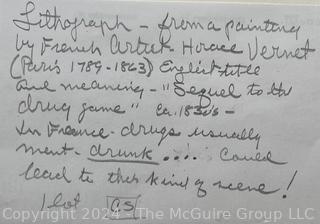 Lithograph - from a painting
by French Artist - Horace Vernet
(Paris 1789-1863) English title
and meaning - "Sequel to the
drug game" Ca. 1830s -
In France - drugs usually
meant - drunk .... Could
lead to this kind of scene!
1 lot CS
Copyright 2024 The McGuire Group, LLC